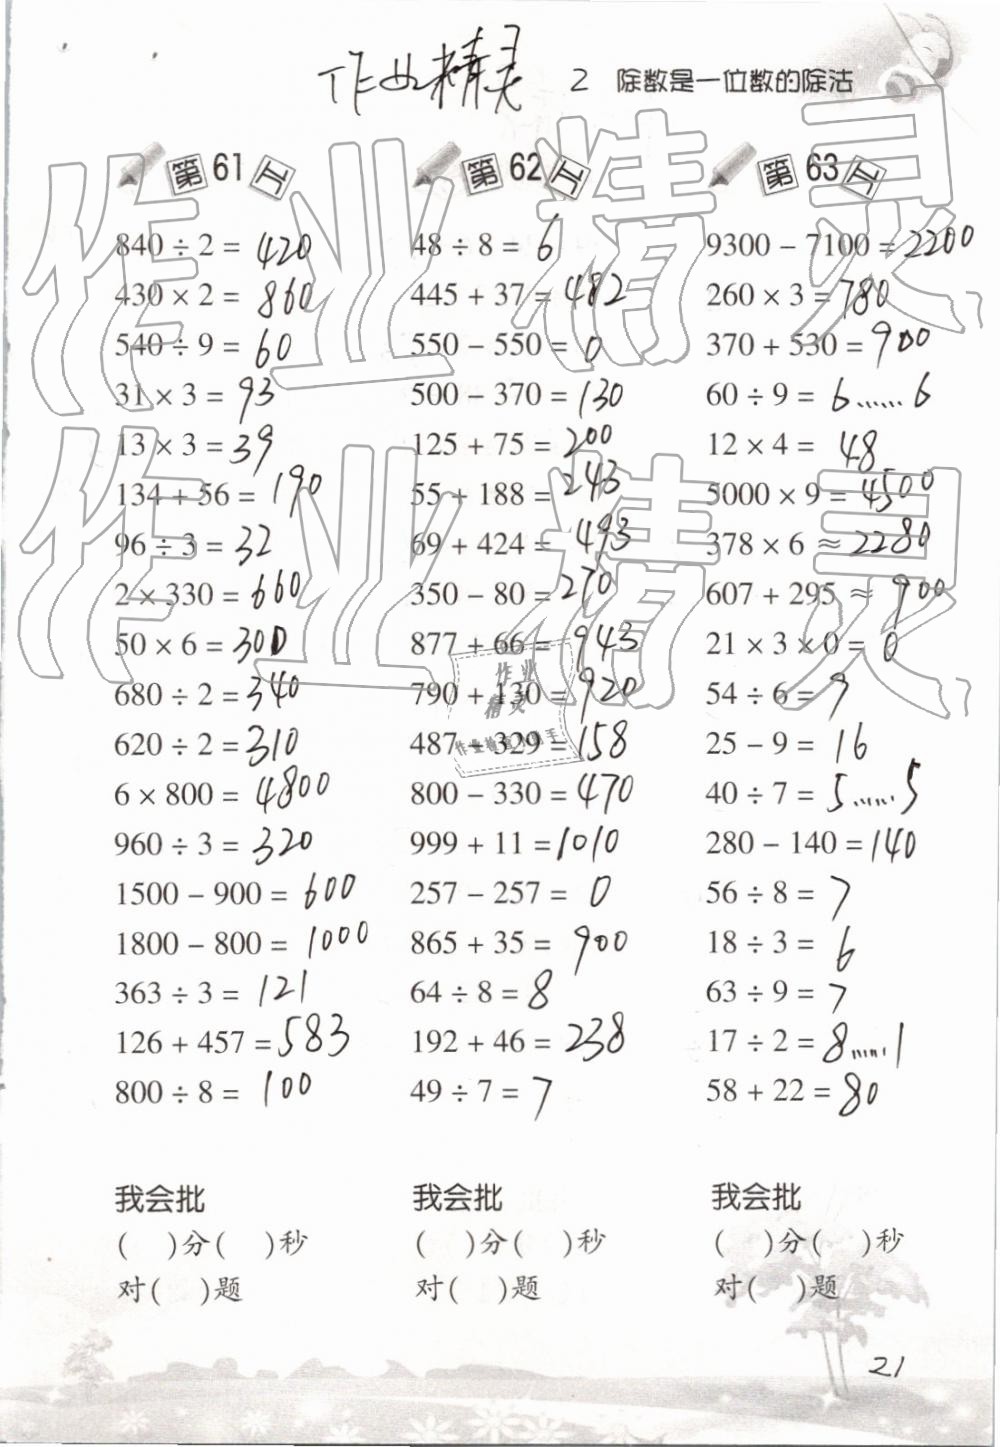 作业精灵 2 除数是一位数的除法
第61天
840 ÷ 2 = 420
430 × 2 = 860
540 ÷ 9 = 60
31 × 3 = 93
13 × 3 = 39
134 + 56 = 190
96 ÷ 3 = 32
2 × 330 = 660
50 × 6 = 300
680 ÷ 2 = 340
620 ÷ 2 = 310
6 × 800 = 4800
960 ÷ 3 = 320
1500 − 900 = 600
1800 − 800 = 1000
363 ÷ 3 = 121
126 + 457 = 583
800 ÷ 8 = 100
我会批
( )分( )秒
对( )题
第62天
48 ÷ 8 = 6
445 + 37 = 482
550 − 550 = 0
500 − 370 = 130
125 + 75 = 200
55 + 188 = 243
69 + 424 = 493
350 − 80 = 270
877 + 66 = 943
790 + 130 = 920
487 − 329 = 158
800 − 330 = 470
999 + 11 = 1010
257 − 257 = 0
865 + 35 = 900
64 ÷ 8 = 8
192 + 46 = 238
49 ÷ 7 = 7
我会批
( )分( )秒
对( )题
第63天
9300 − 7100 = 2200
260 × 3 = 780
370 + 530 = 900
60 ÷ 9 = 6……6
12 × 4 = 48
5000 × 9 = 4500
378 × 6 ≈ 2280
607 + 295 ≈ 900
21 × 3 × 0 = 0
54 ÷ 6 = 9
25 − 9 = 16
40 ÷ 7 = 5……5
280 − 140 = 140
56 ÷ 8 = 7
18 ÷ 3 = 6
63 ÷ 9 = 7
17 ÷ 2 = 8……1
58 + 22 = 80
我会批
( )分( )秒
对( )题
21
作业精灵
作业精灵
作业
精灵